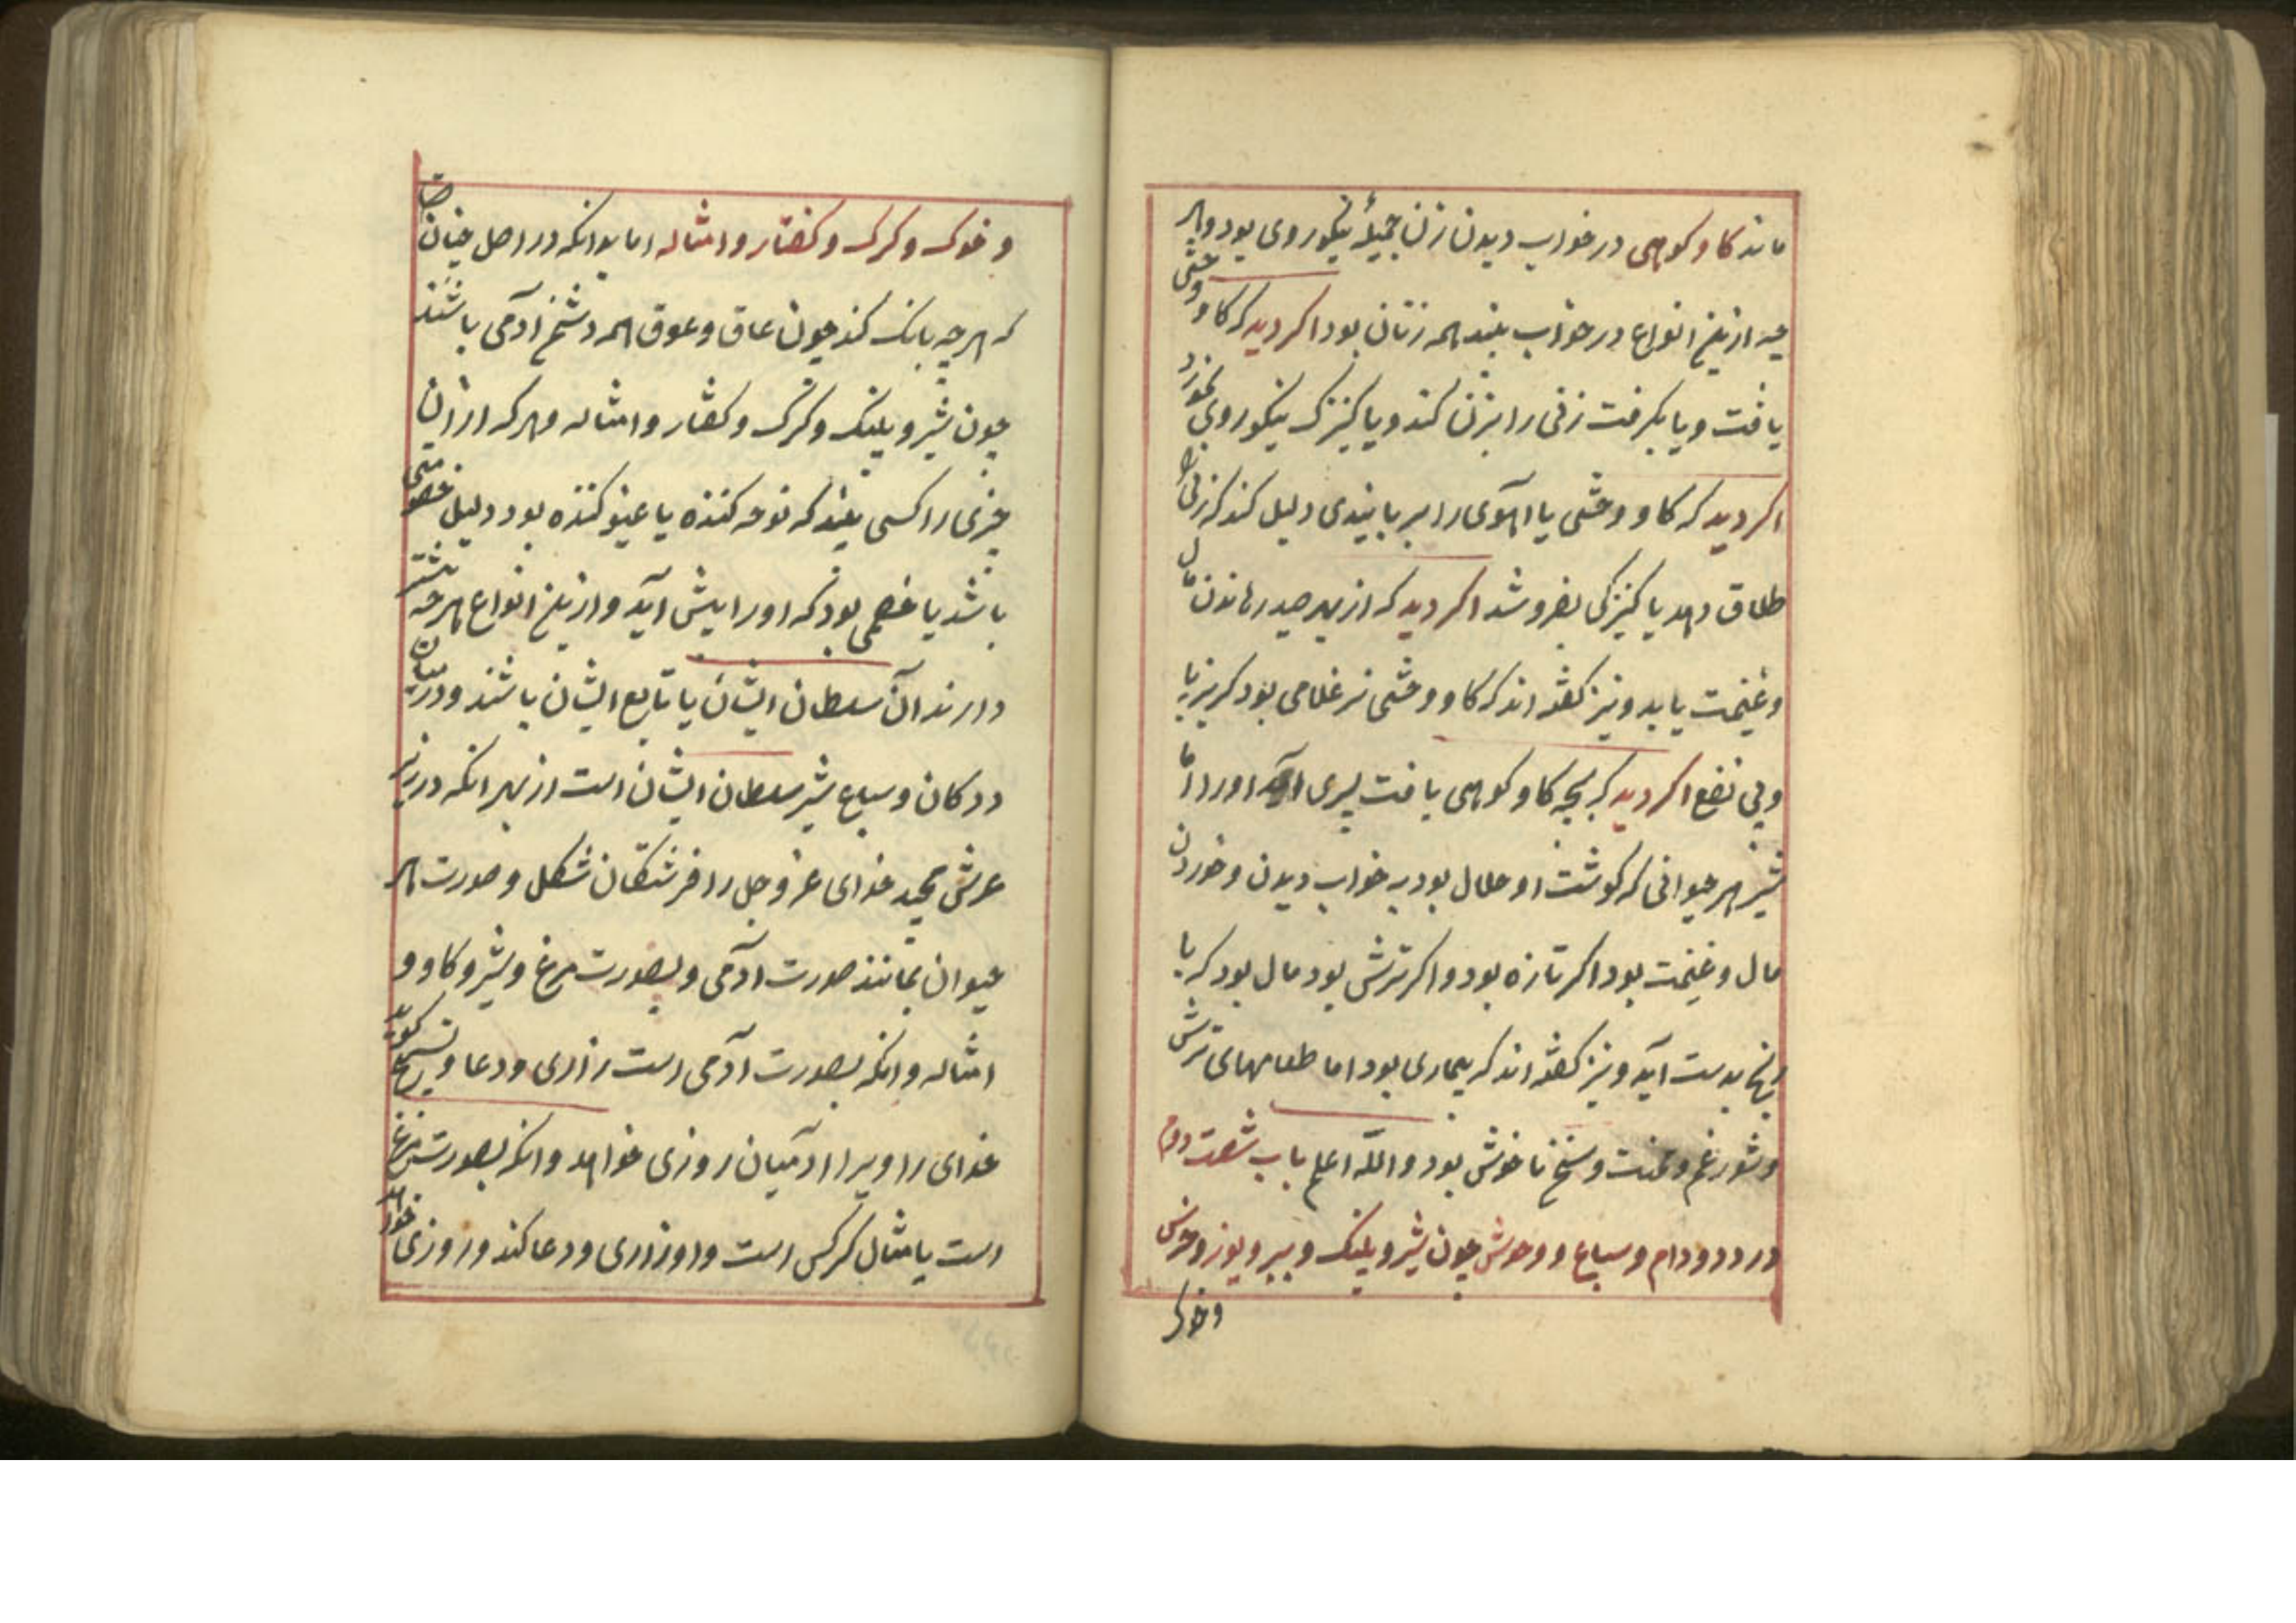 ماده كاو كوهی در خواب ديدن زن جميلهٔ نيكوروی بود و هر
چه ازين انواع در خواب بيند همه زنان بود اكر ديد كه كاو وحشی
يافت و يا بكرفت زنی را بزن كند و يا كنيزك نيكوروی بخرد
اكر ديد كه كاو وحشی يا آهوی را دليل كند كه زن را
طلاق دهد يا كنيزكی بفروشد اكر ديد كه از بهر صيد مال
و غنيمت يابد و نيز كفته اند كه كاو وحشی نر غلامی بود كريزپا
و بی نفع اكر ديد كه بچه كاو كوهی يافت پسری آيد او را اما
شير هر حيوانی كه كوشت او حلال بود بخواب ديدن و خوردن
مال و غنيمت بود اكر تازه بود و اكر ترش بود مال بود كه با
رنج بدست آيد و نيز كفته اند كه بيماری بود اما طعامهای ترش
و شور غم و محنت و سخن ناخوش بود والله اعلم باب شصت دوم
در دد و دام و سباع و وحوش چون شير و پلنك و ببر و يوز و خرس
و خوك
و خوك و كرك و كفتار و امثاله اما بدانكه در اصل چنان
كه هر چه بانك كند چون عاق و عوق همه دشمن آدمی باشند
چون شير و پلنك و كرك و كفتار و امثاله و هر كه ازان
چيزی را كسی بيند كه نوحه كننده يا كننده بود دليل خصومتی
باشد يا خصمی بود كه او را پيش آيد و ازين انواع هر چه بيشتر
دارند آن سلطان ايشان يا تابع ايشان باشند و درميان
ددكان و سباع شير سلطان ايشان است از بهر انكه در زير
عرش مجيد خدای عز و جل را فرشتكان شكل و صورت هر
حيوان بمانند صورت آدمی و بصورت مرغ و شير و كاو و
امثاله و انكه بصورت آدمی است زاری و دعا و تسبيح كويد
خدای را و برا آدميان روزی خواهد و انكه بصورت مرغ
است يا مثال كركس است و او زاری و دعا كند و روزی خواهد